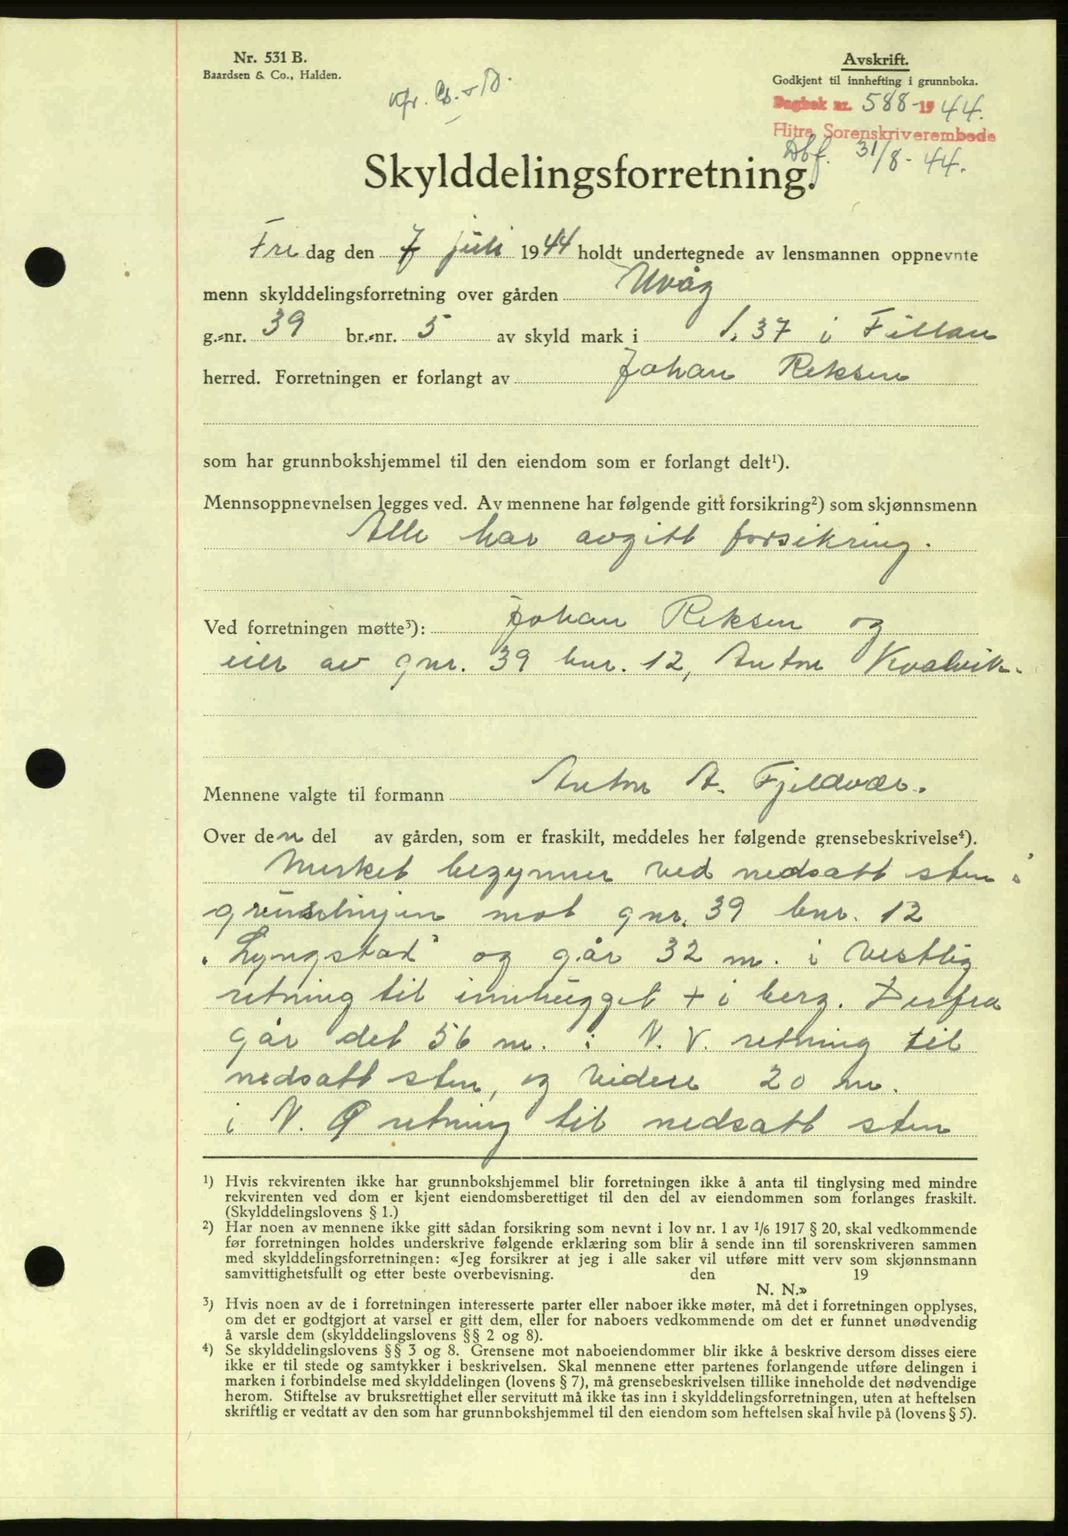 Nr. 531 B.
Baardsen & Co., Halden.
Avskrift.
Godkjent til innhefting i grunnboka.
Dagbok nr. 588-1944.
Hitra Sorenskriverembede
Dbf. 31/8-44.
Skylddelingsforretning.
Fredag den 7 juli 1944 holdt undertegnede av lensmannen oppnevnte
menn skylddelingsforretning over gården Uvåg
g.-nr. 39 br.-nr. 5 av skyld mark i 1,37 i Fillan
herred. Forretningen er forlangt av Johan Reksen
som har grunnbokshjemmel til den eiendom som er forlangt delt¹).
Mennsoppnevnelsen legges ved. Av mennene har følgende gitt forsikring²) som skjønnsmenn
Alle har avgitt forsikring.
Ved forretningen møtte³): Johan Reksen og
eier av gnr. 39 bnr. 12, Anton Kvalvik.
Mennene valgte til formann Anton A. Fjeldvær.
Over den del av gården, som er fraskilt, meddeles her følgende grensebeskrivelse⁴).
Merket begynner ved nedsatt sten i
grenselinjen mot gnr. 39 bnr. 12
"Lyngstad" og går 32 m. i vestlig
retning til innhugget + i berg. Derfra
går det 56 m. i N.V. retning til
nedsatt sten, og videre 20 m.
i N. Ø retning til nedsatt sten
¹) Hvis rekvirenten ikke har grunnbokshjemmel blir forretningen ikke å anta til tinglysing med mindre
rekvirenten ved dom er kjent eiendomsberettiget til den del av eiendommen som forlanges fraskilt.
(Skylddelingslovens § 1.)
²) Har noen av mennene ikke gitt sådan forsikring som nevnt i lov nr. 1 av 1/6 1917 § 20, skal vedkommende
før forretningen holdes underskrive følgende erklæring som blir å sende inn til sorenskriveren sammen
med skylddelingsforretningen: «Jeg forsikrer at jeg i alle saker vil utføre mitt verv som skjønnsmann
samvittighetsfullt og etter beste overbevisning. den 19
N. N.»
³) Hvis noen av de i forretningen interesserte parter eller naboer ikke møter, må det i forretningen opplyses,
om det er godtgjort at varsel er gitt dem, eller for naboers vedkommende om det er funnet unødvendig
å varsle dem (skylddelingslovens §§ 2 og 8).
⁴) Se skylddelingslovens §§ 3 og 8. Grensene mot naboeiendommer blir ikke å beskrive dersom disses eiere
ikke er til stede og samtykker i beskrivelsen. Skal mennene etter partenes forlangende utføre delingen i
marken i forbindelse med skylddelingen (lovens § 7), må grensebeskrivelsen tillike inneholde det nødvendige
herom. Stiftelse av bruksrettighet eller servitutt må ikke tas inn i skylddelingsforretningen, uten at heftelsen
skriftlig er vedtatt av den som har grunnbokshjemmel til den eiendom som heftelsen skal hvile på (lovens § 5).